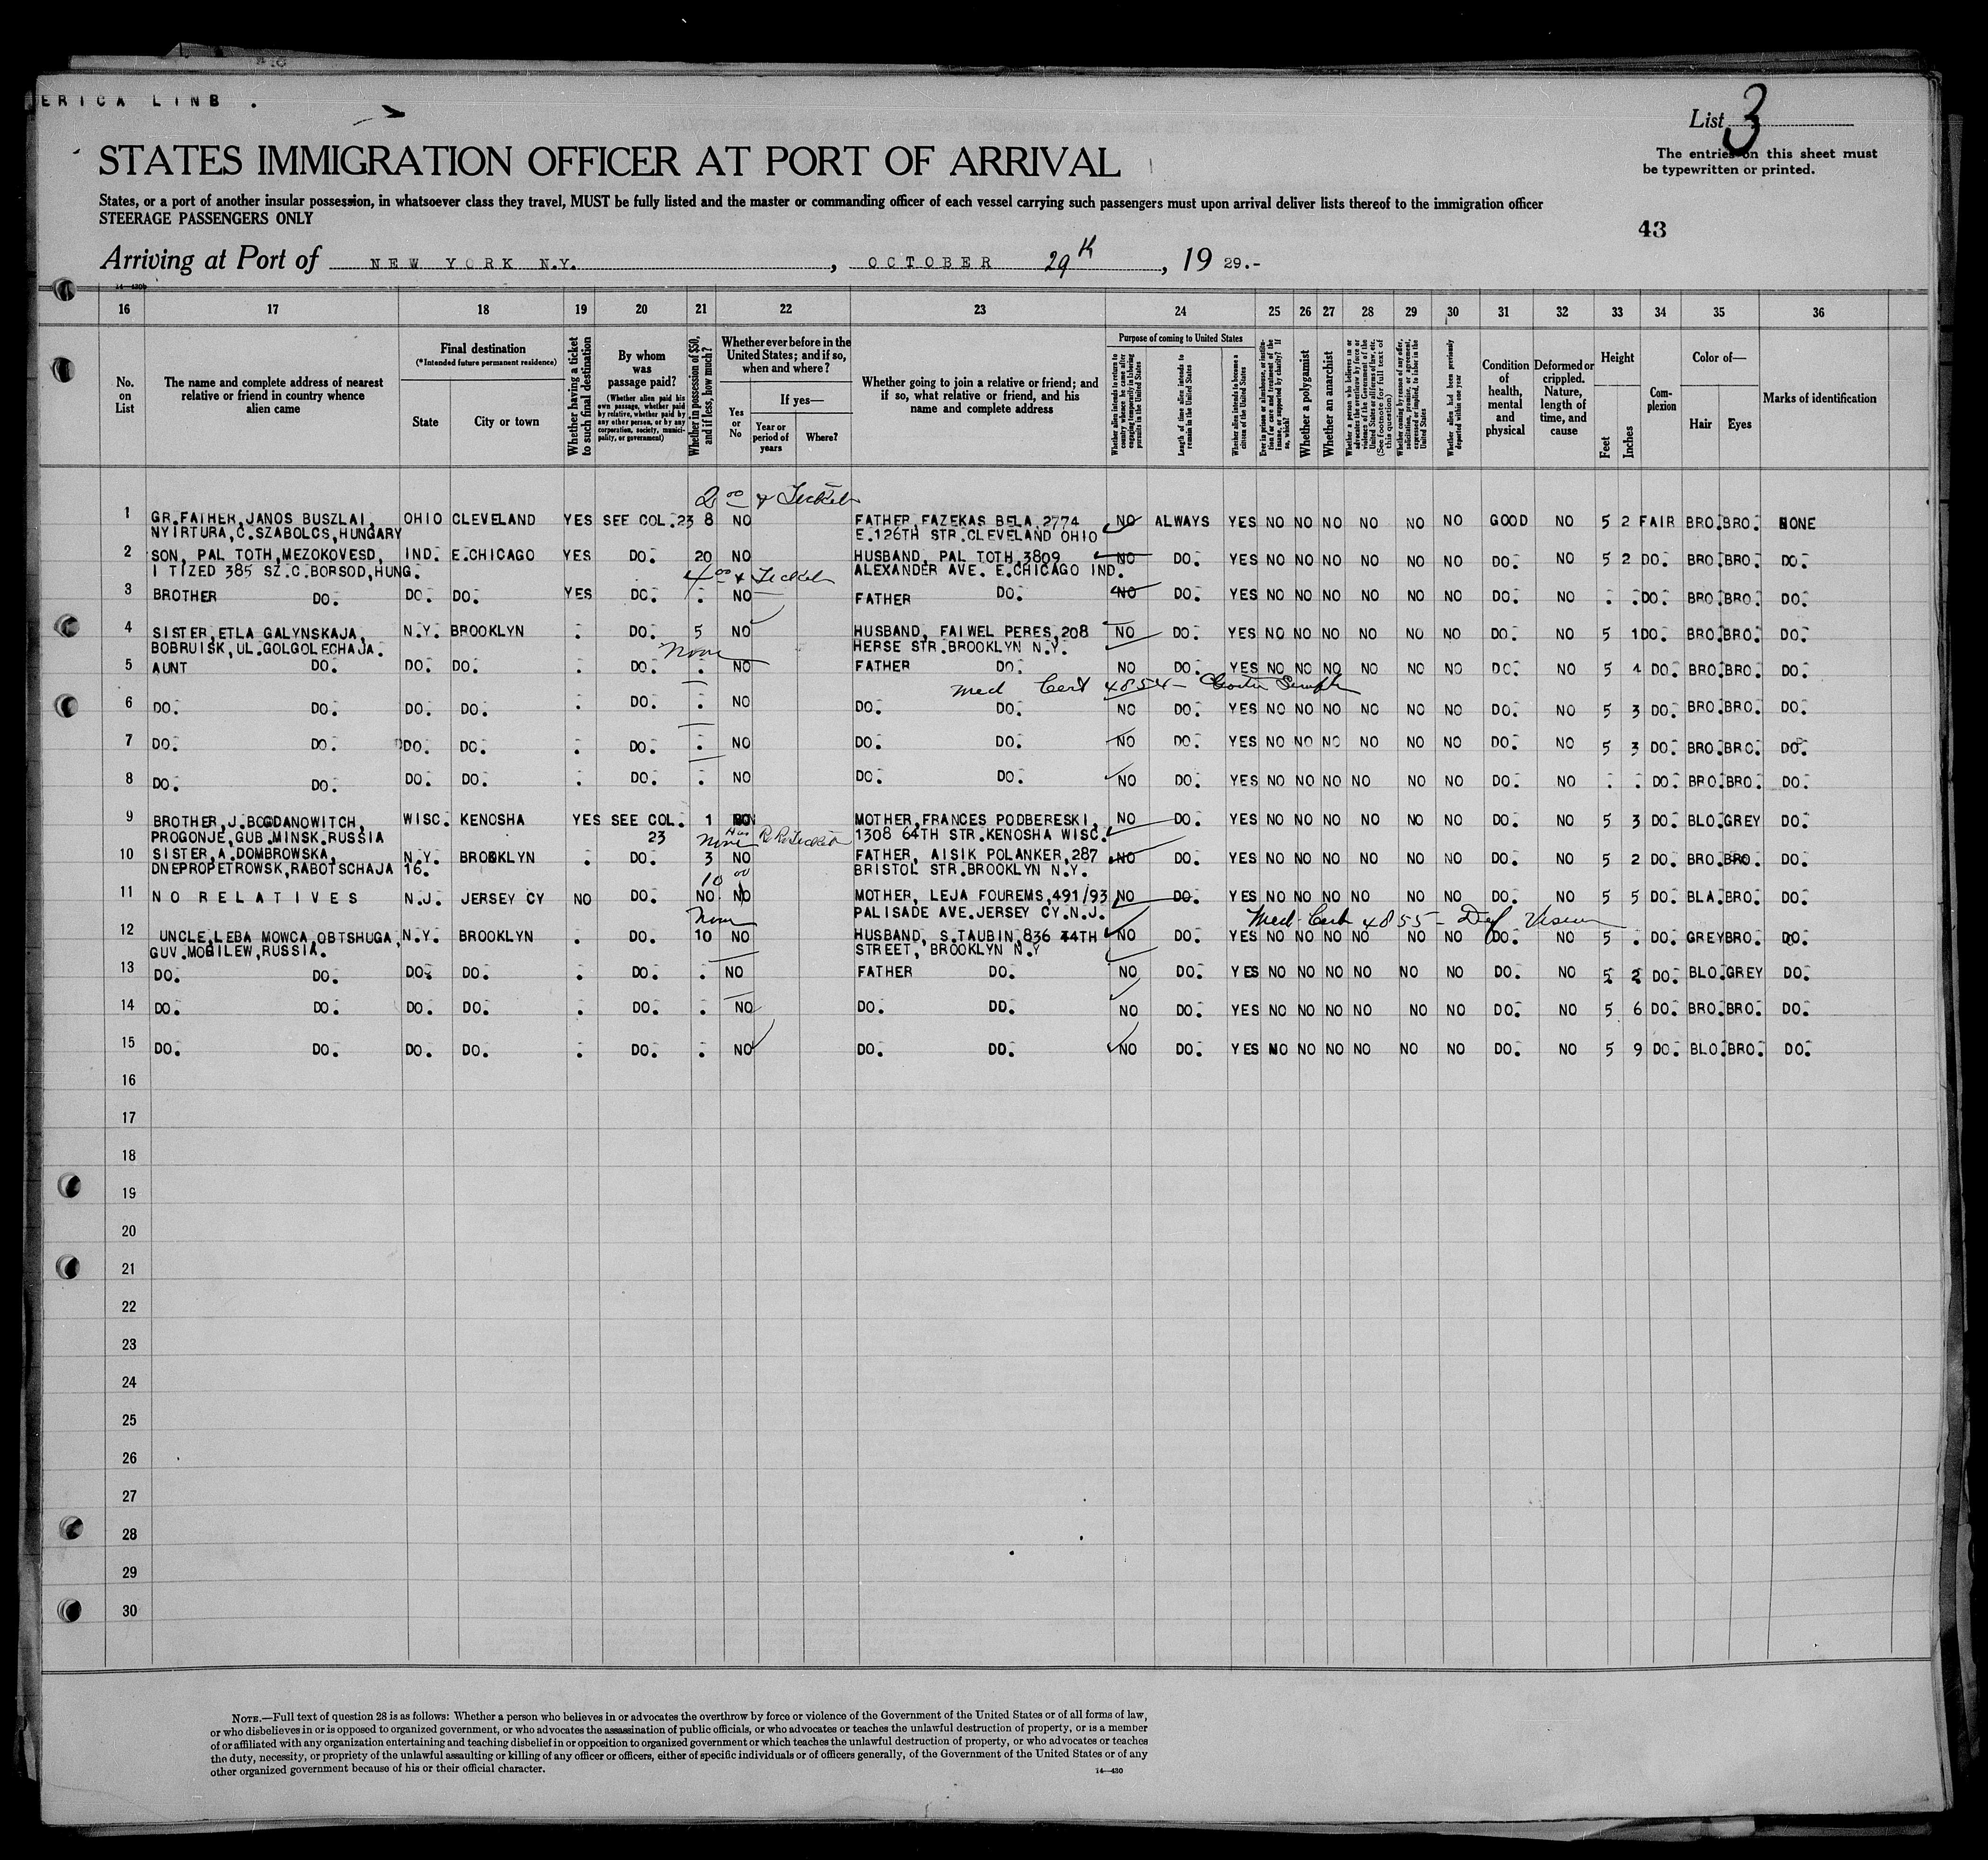 ERICA LINE.
List 3
The entries on this sheet must
be typewritten or printed.
STATES IMMIGRATION OFFICER AT PORT OF ARRIVAL
States, or a port of another insular possession, in whatsoever class they travel, MUST be fully listed and the master or commanding officer of each vessel carrying such passengers must upon arrival deliver lists thereof to the immigration officer
STEERAGE PASSENGERS ONLY
43
Arriving at Port of NEW YORK N.Y., OCTOBER 29th, 1929.-
14—430b
16 17 18 19 20 21 22 23 24 25 26 27 28 29 30 31 32 33 34 35 36
No. on List
The name and complete address of nearest relative or friend in country whence alien came
Final destination (*Intended future permanent residence)
State
City or town
Whether having a ticket to such final destination
By whom was passage paid? (Whether alien paid his own passage, whether paid by relative, whether paid by any other person, or by any corporation, society, municipality, or government)
Whether in possession of $50, and if less, how much?
Whether ever before in the United States; and if so, when and where?
Yes or No
If yes—
Year or period of years
Where?
Whether going to join a relative or friend; and if so, what relative or friend, and his name and complete address
Purpose of coming to United States
Whether alien intends to return to country whence he came after engaging temporarily in laboring pursuits in the United States
Length of time alien intends to remain in the United States
Whether alien intends to become a citizen of the United States
Ever in prison or almshouse, or institution for care and treatment of the insane, or supported by charity? If so, which?
Whether a polygamist
Whether an anarchist
Whether a person who believes in or advocates the overthrow by force or violence of the Government of the United States or all forms of law, etc. (See footnote for full text of this question)
Whether coming by reason of any offer, solicitation, promise, or agreement, expressed or implied, to labor in the United States
Whether alien had been previously deported within one year
Condition of health, mental and physical
Deformed or crippled. Nature, length of time, and cause
Height
Feet
Inches
Complexion
Color of—
Hair
Eyes
Marks of identification
2 00 & Ticket
1 GR.FATHER, JANOS BUSZLAI, OHIO CLEVELAND YES SEE COL.23 8 NO FATHER, FAZEKAS BELA, 2774 NO ALWAYS YES NO NO NO NO NO NO GOOD NO 5 2 FAIR BRO. BRO. NONE
NYIRTURA, C.SZABOLCS, HUNGARY E.126TH STR.CLEVELAND OHIO
2 SON, PAL TOTH, MEZOKOVESD, IND. E.CHICAGO YES DO. 20 NO HUSBAND, PAL TOTH, 3809 NO DO. YES NO NO NO NO NO NO DO. NO 5 2 DO. BRO. BRO. DO.
I TIZED 385 SZ.C.BORSOD, HUNG. ALEXANDER AVE. E.CHICAGO IND.
4 00 & Ticket
3 BROTHER DO. DO. DO. YES DO. . NO FATHER DO. NO DO. YES NO NO NO NO NO NO DO. NO . . DO. BRO. BRO. DO.
4 SISTER, ETLA GALYNSKAJA, N.Y. BROOKLYN . DO. 5 NO HUSBAND, FAIWEL PERES, 208 NO DO. YES NO NO NO NO NO NO DO. NO 5 1 DO. BRO. BRO. DO.
BOBRUISK, UL.GOLGOLECHAJA. HERSE STR.BROOKLYN N.Y.
none
5 AUNT DO. DO. DO. . DO. . NO FATHER DO. NO DO. YES NO NO NO NO NO NO DO. NO 5 4 DO. BRO. BRO. DO.
Med Cert 4854-
6 DO. DO. DO. DO. . DO. . NO DO. DO. NO DO. YES NO NO NO NO NO NO DO. NO 5 3 DO. BRO. BRO. DO.
7 DO. DO. DO. DO. . DO. . NO DO. DO. NO DO. YES NO NO NO NO NO NO DO. NO 5 3 DO. BRO. BRO. DO.
8 DO. DO. DO. DO. . DO. . NO DO. DO. NO DO. YES NO NO NO NO NO NO DO. NO . . DO. BRO. BRO. DO.
9 BROTHER, J.BOGDANOWITCH, WISC. KENOSHA YES SEE COL. 1 NO MOTHER, FRANCES PODBERESKI, NO DO. YES NO NO NO NO NO NO DO. NO 5 3 DO. BLO. GREY DO.
PROGONJE, GUB.MINSK.RUSSIA 23 none Has R.R. Ticket 1308 64TH STR.KENOSHA WISC.
10 SISTER, A.DOMBROWSKA, N.Y. BROOKLYN . DO. 3 NO FATHER, AISIK POLANKER, 287 NO DO. YES NO NO NO NO NO NO DO. NO 5 2 DO. BRO. BRO. DO.
DNEPROPETROWSK, RABOTSCHAJA 16. BRISTOL STR.BROOKLYN N.Y.
10 00
11 NO RELATIVES N.J. JERSEY CY NO DO. NO. NO MOTHER, LEJA FOUREMS, 491/93 NO DO. YES NO NO NO NO NO NO DO. NO 5 5 DO. BLA. BRO. DO.
PALISADE AVE.JERSEY CY.N.J.
none Med Cert 4855- Def Vision
12 UNCLE, LEBA MOWCA, OBTSHUGA, N.Y. BROOKLYN . DO. 10 NO HUSBAND, S.TAUBIN, 836 44TH NO DO. YES NO NO NO NO NO NO DO. NO 5 . DO. GREY BRO. DO.
GUV.MOGILEW, RUSSIA. STREET, BROOKLYN N.Y
13 DO. DO. DO. DO. . DO. . NO FATHER DO. NO DO. YES NO NO NO NO NO NO DO. NO 5 2 DO. BLO. GREY DO.
14 DO. DO. DO. DO. . DO. . NO DO. DO. NO DO. YES NO NO NO NO NO NO DO. NO 5 6 DO. BRO. BRO. DO.
15 DO. DO. DO. DO. . DO. . NO DO. DO. NO DO. YES NO NO NO NO NO NO DO. NO 5 9 DO. BLO. BRO. DO.
16
17
18
19
20
21
22
23
24
25
26
27
28
29
30
NOTE.—Full text of question 28 is as follows: Whether a person who believes in or advocates the overthrow by force or violence of the Government of the United States or of all forms of law,
or who disbelieves in or is opposed to organized government, or who advocates the assassination of public officials, or who advocates or teaches the unlawful destruction of property, or is a member
of or affiliated with any organization entertaining and teaching disbelief in or opposition to organized government or which teaches the unlawful destruction of property, or who advocates or teaches
the duty, necessity, or propriety of the unlawful assaulting or killing of any officer or officers, either of specific individuals or of officers generally, of the Government of the United States or of any
other organized government because of his or their official character.
14—430